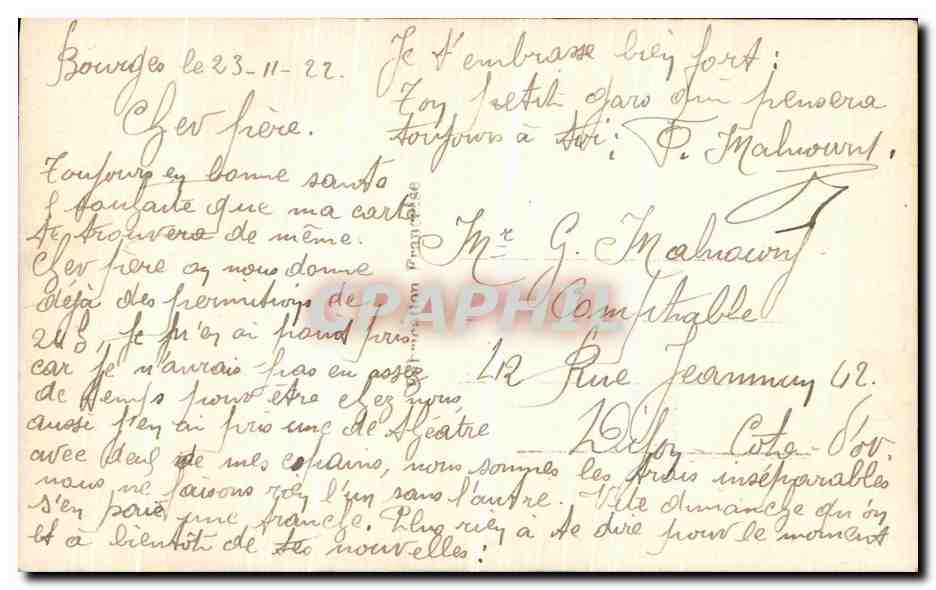 Bourges le 23-11-22.
Cher frère.
Toujours en bonne sante
I souhaite que ma carte
te trouvera de même.
Cher frère on nous donne
déjà des permitions de
24 h, je n'en ai point pris
car je n'aurais pas eu assez
de temps pour être chez nous,
aussi j'en ai pris une de théatre
avec deux de mes copains, nous sommes les trois inséparables
nous ne faisons rien l'un sans l'autre. Vite dimanche qu'on
s'en paie une tranche. Plus rien à te dire pour le moment
et à bientôt de tes nouvelles:
Je t'embrasse bien fort:
Ton petit gars qui pensera
toujours à toi: P. Malnourry.
Mr G. Malnoury
Comptable
42 Rue Jeannin 42.
Dijon Cote d'or.
Fabrication Française
CPAPHIL